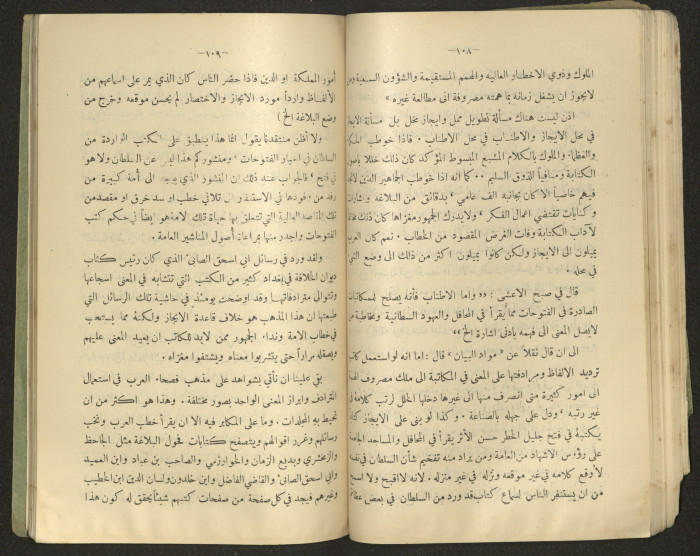 ١٠٨
الملوك وذوي الاخطار العاليه والهمم المستقيمة والشؤون السنية ومن
لايجوز ان يشغل زمانه بما همته مصروفة الى مطالعة غيره »
اذن ليست هناك مسألة تطويل ممل وايجاز مخل بل مسألة الايجاز
في محل الايجاز والاطناب في محل الاطناب . فاذا خوطب
والملوك بالكلام المشبع المبسوط المؤكد كان ذلك خللا
الكتابة ومنافياً للذوق السليم .. كما انه اذا خوطب الجماهير الذين
فيهم خاصياً الا كان بجانبه الف عامي ، بدقائق من البلاغة
وكنايات تقتضي اعمال الفكر ، ولايدرك الجمهور مغزاها كان ذلك
لآداب الكتابة وفات الغرض المقصود من الخطاب . نعم كان العرب
يميلون الى الايجاز ولكن كانوا يميلون اكثر من ذلك الى وضع الشي
في محله .
قال في صبح الاعشى : « واما الاطناب فأنه يصلح للمكاتبات
الصادرة في الفتوحات مما يقرأ في المحافل والعهود السلطانية ومخاطبة من
لايصل المعنى الى فهمه بادنى اشارة الخ »
الى ان قال نقلاً عن « مواد البيان » قال : اما انه لو استعمل كاتب
ترديد الالفاظ ومرادفتها على المعنى في المكاتبة الى ملك مصروف
الى امور كثيرة متى انصرف منها الى غيرها دخلها الخلل لرتب كلامه في
غير رتبه ، ودل على جهله بالصناعة . وكذا لو بنى على الايجاز
يكتبه في فتح جليل الخطر حسن الأثر يقرأ في المحافل والمساجد الجامعة
على رؤس الاشهاد من العامة ومن يراد منه تفخيم شأن السلطان في نفسه
لأوقع كلامه في غير موقعه ونزله في غير منزله . لانه لا اقبح ولا اسمج
من ان يستنفر الناس لسماع كتاب قد ورد من السلطان في بعض عظائم
١٠٩
أمور المملكة او الدين فاذا حضر الناس كان الذي يمر على اسماعهم من
الألفاظ وارداً مورد الايجاز والاختصار لم يحسن موقعه وخرج من
وضع البلاغة الخ )
ولا أظن منتقدنا يقول انما هذا ينطبق على الكتب الواردة من
السلطان في اخبار الفتوحات ، ومنشوركم هذا ليس عن السلطان ولا هو
في فتح ، فالجواب عند ذلك ان المنشور الذي يوجه الى أمة كبيرة من
وفد من وفودها في الاستنفار الى تلافي خطب او سد خرق او مقصد من
تلك المقاصد العالية التي تتعلق بها حياة تلك الامة هو ايضاً في حكم كتب
الفتوحات واجدر منها بمراعاة أصول المناشير العامة .
ولقد ورد في رسائل ابي اسحق الصابئ الذي كان رئيس كتاب
ديوان الخلافة في بغداد كثير من الكتب التي تتشابه في المعنى اسجاعها
وتتوالى مترادفاتها وقد اوضحت يومئذ في حاشية تلك الرسائل التي
طبعتها ان هذا المذهب هو خلاف قاعدة الايجاز ولكنه مما يستحب
في خطاب الامة ونداء الجمهور ممن لابد للكاتب ان يعيد المعنى عليهم
ويصقله مراراً حتى يتشربوا معناه ويشتفوا مغزاه .
بقي علينا ان نأتي بشواهد على مذهب فصحاء العرب في استعمال
المترادف وابراز المعنى الواحد بصور مختلفة . وهذا هو اكثر من ان
تحيط به المجلدات . وما على المكابر فيه الا ان يقرأ خطب العرب ونخب
رسائلهم وغرر اقوالهم ويتصفح كتابات فحول البلاغة مثل الجاحظ
والزمخشري وبديع الزمان والخوارزمي والصاحب بن عباد وابن العميد
وابي اسحق الصابئ والقاضي الفاضل وابن خلدون ولسان الدين ابن الخطيب
وغيرهم فيجد في كل صفحة من صفحات كتبهم شيئاً يحقق له كون هذا